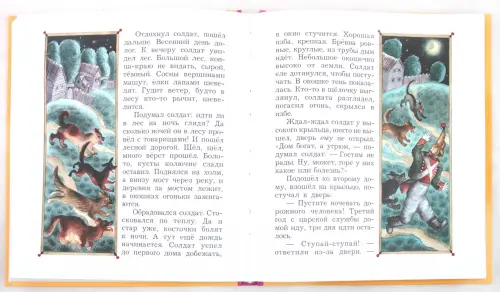 Отдохнул солдат, пошёл
дальше. Весенний день до-
лог. К вечеру солдат уви-
дел лес. Большой лес, кон-
ца-краю не видать, сырой,
тёмный. Сосны вершинами
машут, ёлки лапами шеве-
лят. Гудит ветер, будто в
лесу кто-то рычит, шеве-
лится.
Подумал солдат: идти ли
в лес на ночь глядя? Да
сколько ночей он в лесу про-
вёл с товарищами! И пошёл
лесной дорогой. Шёл, шёл,
много вёрст прошёл. Боло-
то, кусты колючие стали
оставил. Поднялся на холм,
а внизу мост через реку, и
деревня за мостом лежит,
в окошках огоньки зажига-
ются.
Обрадовался солдат: Сто-
сковался по теплу. Да и
стар уже, косточки болят
к ночи. А тут ещё дождь
начинается. Солдат успел
до первого дома добежать,
в окно стучится. Хорошая
изба, крепкая. Брёвна ров-
ные, круглые, из трубы дым
идёт. Небольшое окошечко
высоко от земли. Солдат
еле дотянулся, чтобы посту-
чать. В окошке тень показа-
лась. Кто-то в щёлочку вы-
глянул, солдата разглядел,
погасил огонь, скрылся в
избе.
Ждал-ждал солдат у
высокого крыльца, никто не вы-
шел, дверь ему не открыл.
«Дом богат, а угрюм, — по-
думал солдат. — Гостям не
рады. Ну, может, горе у них
какое или болезнь?»
Подошёл ко второму до-
му, взошёл на крыльцо, по-
стучал в дверь.
— Пустите ночевать до-
рожного человека! Третий
год с царской службы до-
мой иду, три дня идти ос-
талось.
— Ступай-ступай! —
ответили из-за двери. —